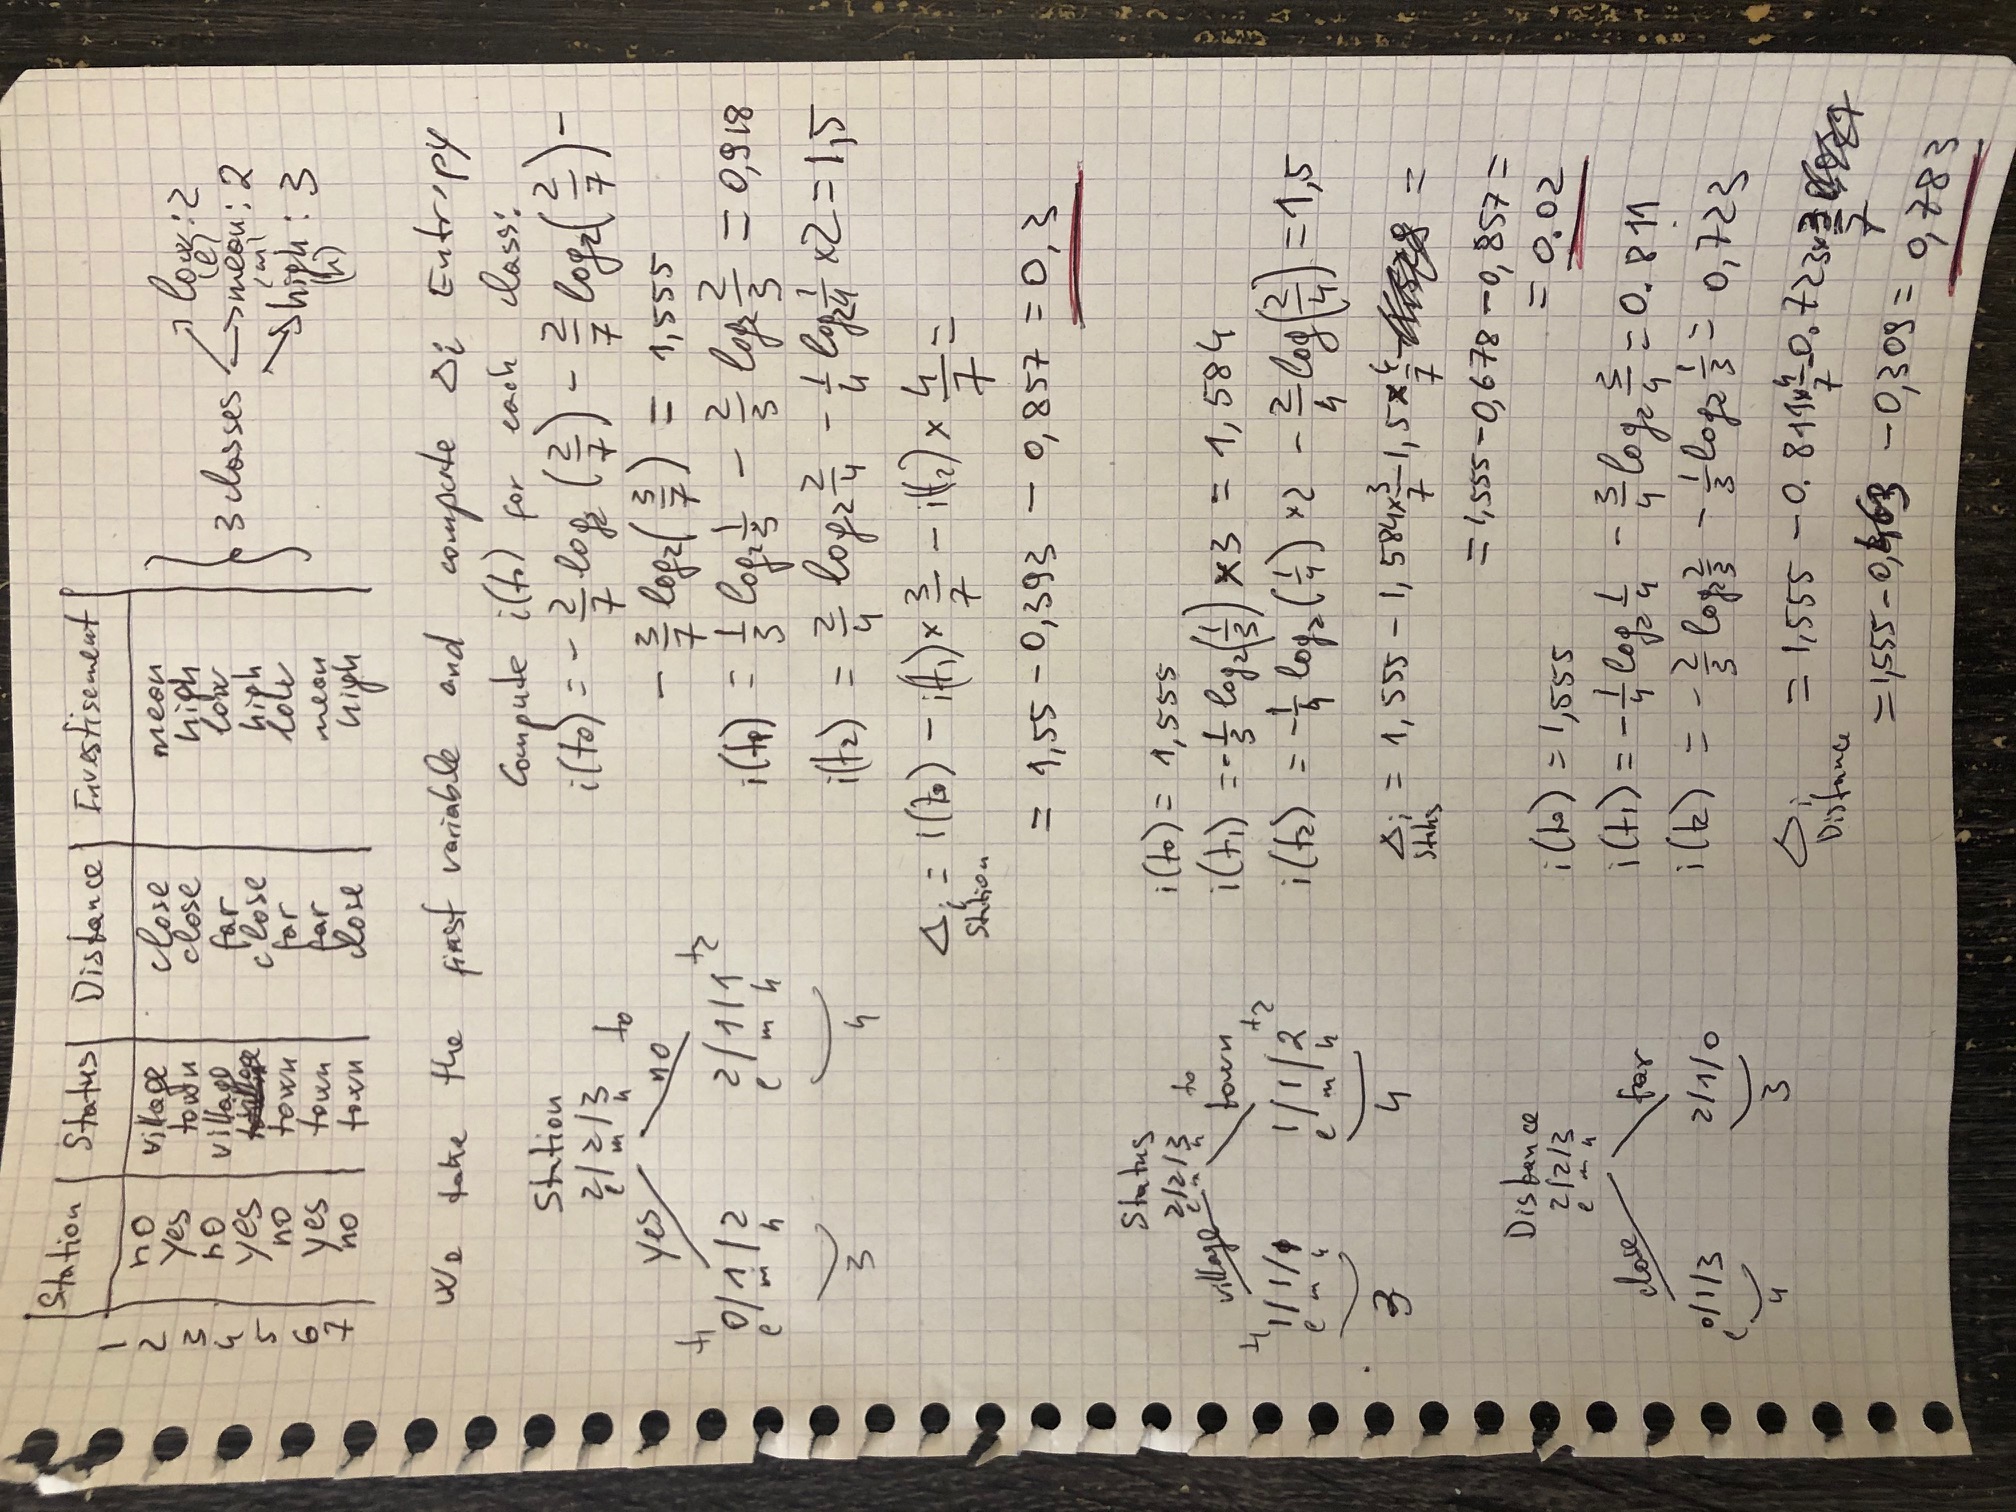 Station | Status | Distance | Investisement
1
2 no village close mean
3 yes town close high
4 no village far low
5 yes village close high
6 no town far low
7 yes town far mean
no town close high
3 classes
low: 2
(l)
mean: 2
(m)
high: 3
(h)
We take the first variable and compute Δi Entropy
Compute i(t₀) for each class:
Station
2/2/3
l m h t₀
yes no
t₁ t₂
0/1/2 2/1/1
l m h l m h
3 4
i(t₀) = - 2/7 log₂ (2/7) - 2/7 log₂(2/7) -
- 3/7 log₂(3/7) = 1,555
i(t₁) = 1/3 log₂ 1/3 - 2/3 log₂ 2/3 = 0,918
i(t₂) = 2/4 log₂ 2/4 - 1/4 log₂ 1/4 ×2 = 1,5
Δi = i(t₀) - i(t₁) × 3/7 - i(t₂) × 4/7 =
Station
= 1,55 - 0,393 - 0,857 = 0,3
Status
2/2/3
l m h t₀
village town
t₁ t₂
1/1/1 1/1/2
l m h l m h
3 4
i(t₀) = 1,555
i(t₁) = - 1/3 log₂(1/3) ×3 = 1,584
i(t₂) = - 1/4 log₂(1/4) ×2 - 2/4 log(2/4) = 1,5
Δi = 1,555 - 1,584 × 3/7 - 1,5 × 4/7 =
Status
= 1,555 - 0,678 - 0,857 =
= 0.02
Distance
2/2/3
l m h
close far
0/1/3 2/1/0
l
4 3
i(t₀) = 1,555
i(t₁) = - 1/4 log₂ 1/4 - 3/4 log₂ 3/4 = 0.811
i(t₂) = - 2/3 log₂ 2/3 - 1/3 log₂ 1/3 = 0,723
Δi = 1,555 - 0.811 × 4/7 - 0.723 × 3/7
Distance
= 1,555 - 0,463 - 0,309 = 0,783